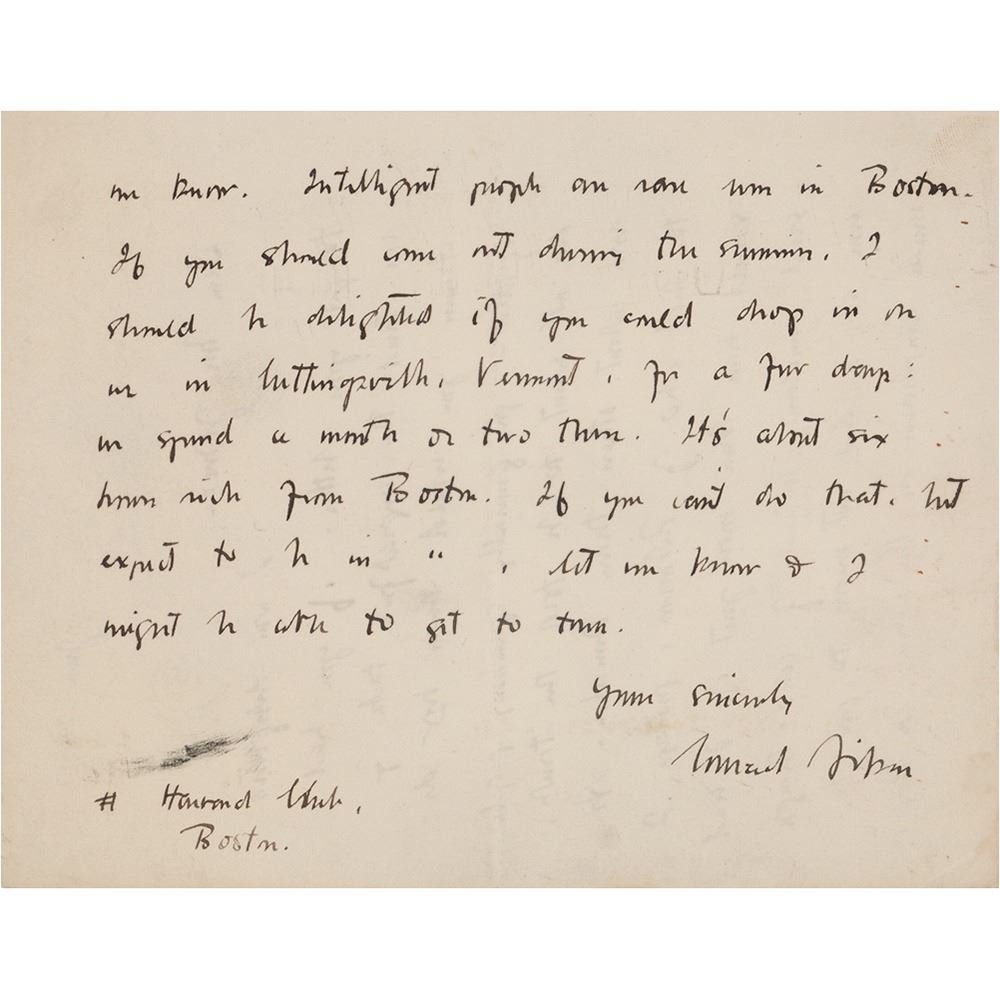 me know. Intelligent people are rare even in Boston.
If you should come out during the summer, I
should be delighted if you could drop in on
us in Cuttingsville, Vermont, for a few days:
we spend a month or two there. It's about six
hours ride from Boston. If you can't do that, but
expect to be in " , let me know & I
might be able to get to town.
Yours sincerely
Conrad Aiken
# Harvard Club,
Boston.